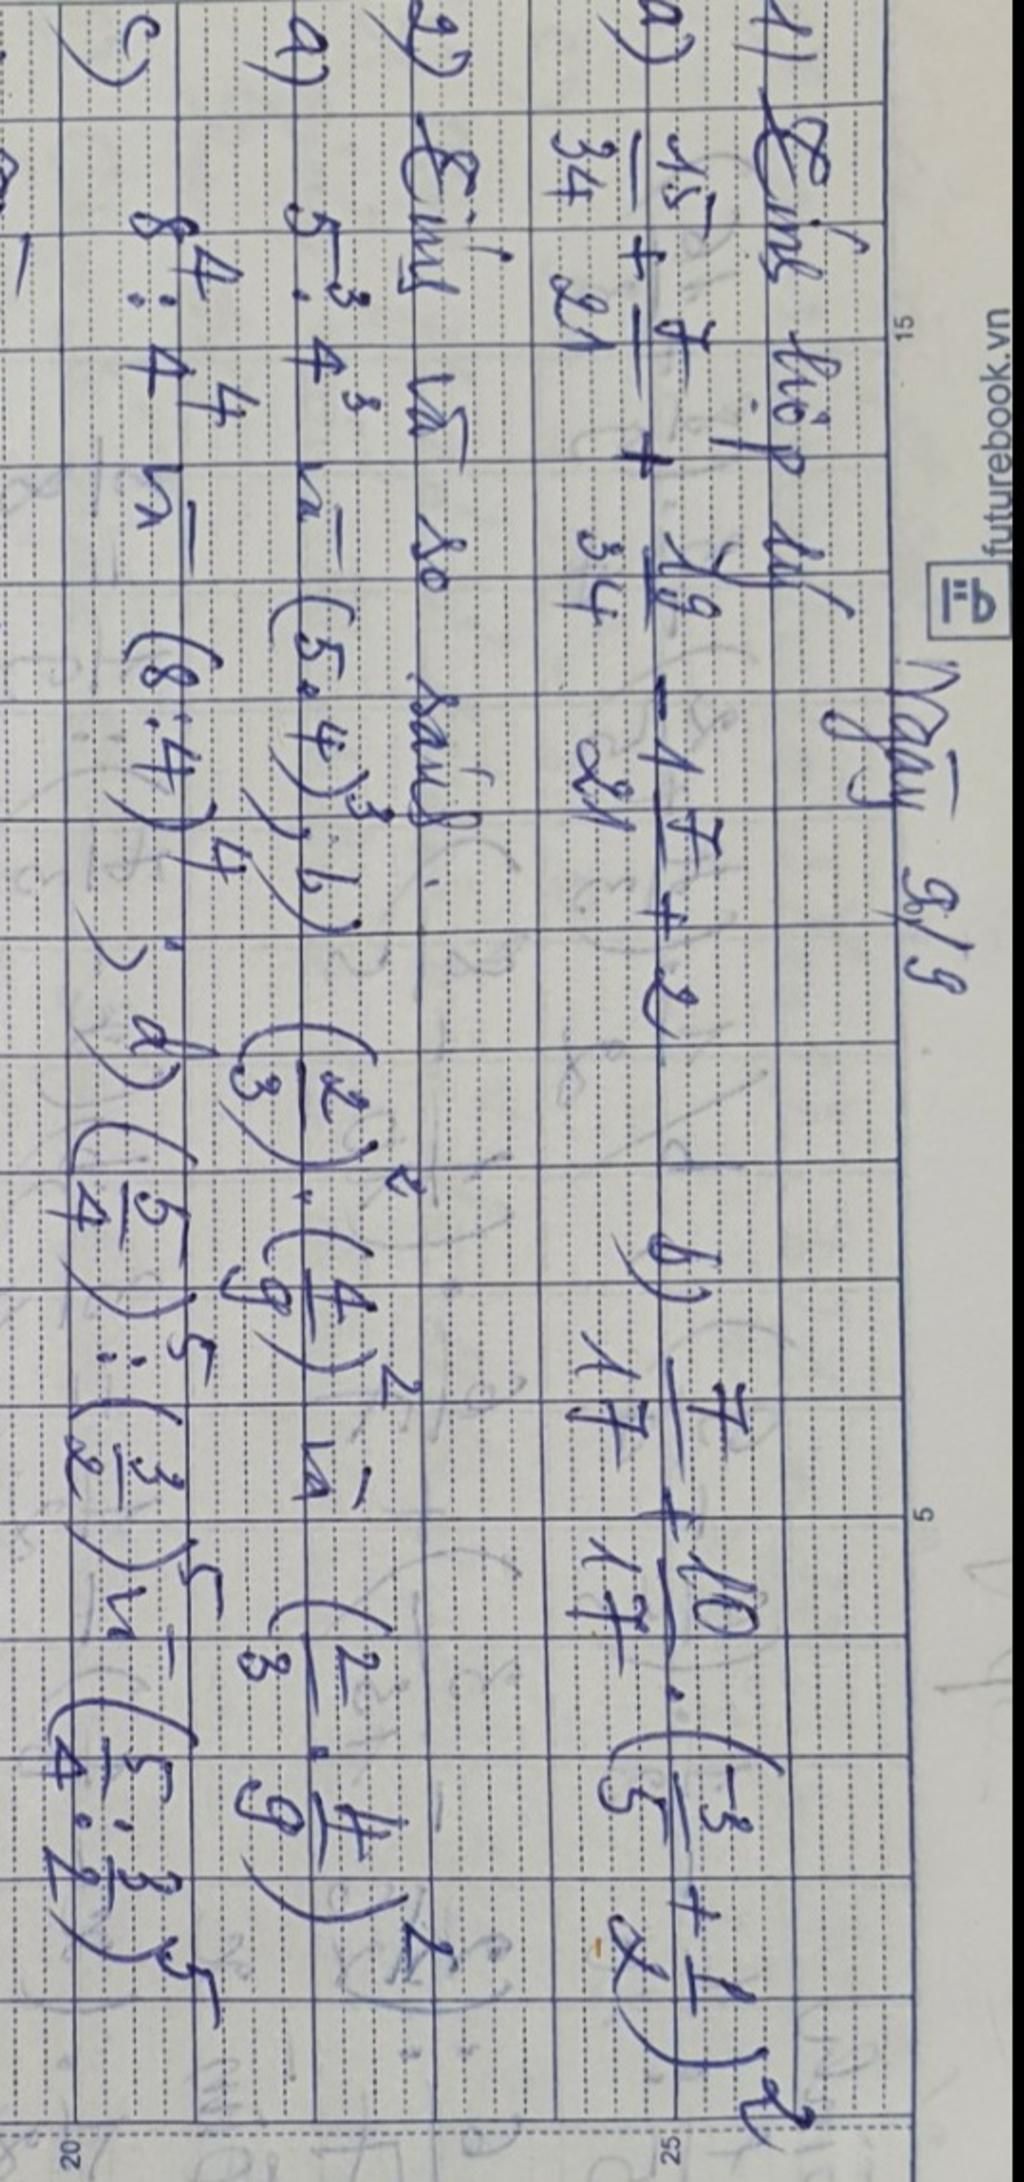 futurebook.vn
15
5
Ngày 9/9
1) Tính hợp lý
a) 15/34 + 7/21 + 19/34 - 1 7/21 + 2 b) 7/17 + 10/17 . (-3/5 + 1/2)^2
25
2) Tính và so sánh.
a) 5^3 . 4^3 và (5.4)^3, b) (2/3)^2 . (4/9)^2 và (2/3 . 4/9)^2
c) 8^4 : 4^4 và (8:4)^4 ; d) (5/4)^5 : (3/2)^5 và (5/4 : 3/2)^5
20